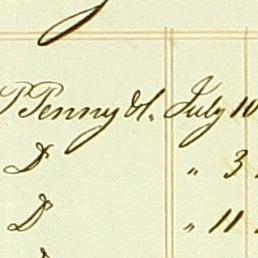 P Penny &1. July 10
D " 3
D " 11